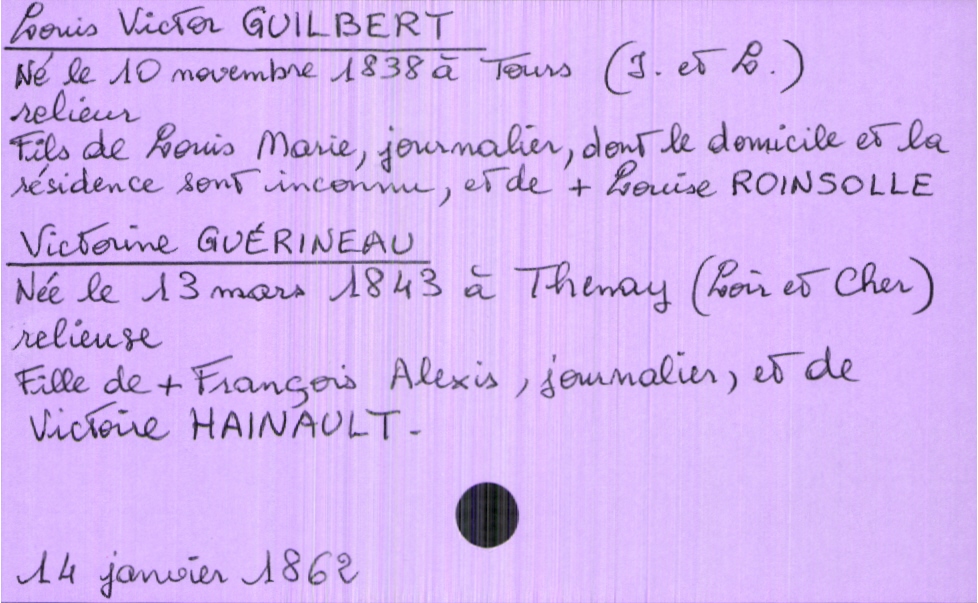 Louis Victor GUILBERT
Né le 10 novembre 1838 à Tours (I. et L.)
relieur
Fils de Louis Marie, journalier, dont le domicile et la
résidence sont inconnu, et de + Louise ROINSOLLE
Victorine GUÉRINEAU
Née le 13 mars 1843 à Thenay (Loir et Cher)
relieuse
Fille de + François Alexis, journalier, et de
Victoire HAINAULT.
14 janvier 1862